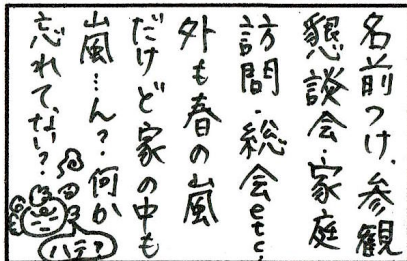 名前つけ、参観
懇談会・家庭
訪問・総会etc,
外も春の嵐
だけど家の中も
嵐…ん？何か
忘れてない？
ハテ？